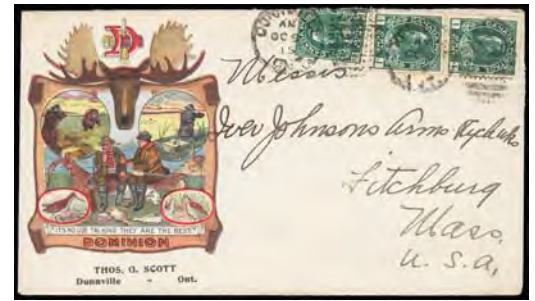 D
"IT'S NO USE TALKING THEY ARE THE BEST"
DOMINION
THOS. G. SCOTT
Dunnville - Ont.
Messrs
Iver Johnsons Arms & Cycle Wks
Fitchburg
Mass.
U. S. a,